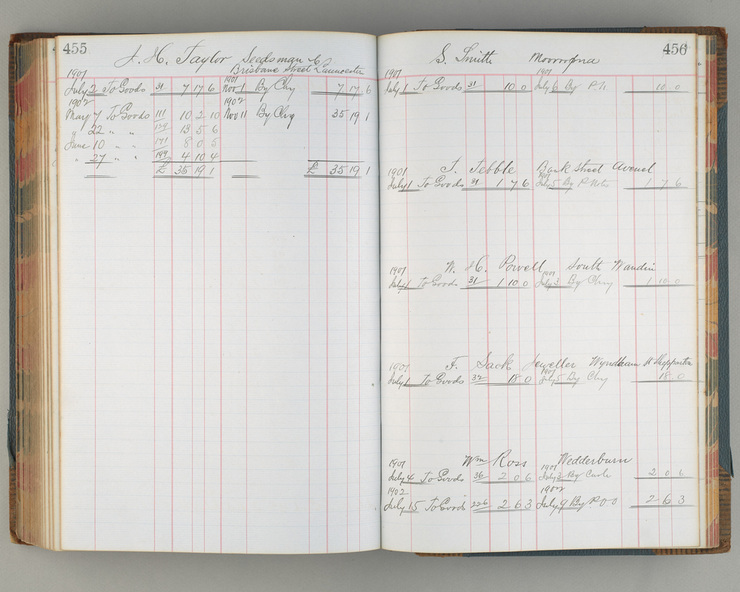 455
J. H. Taylor Seedsman &c
Brisbane Street Launceston
1901 1901
July 2 To Goods 31 7 17 6 Nov 1 By Chq 7 17 6
1902 1902
May 7 To Goods 111 10 2 10 Nov 11 By Chq 35 19 1
" 22 " " 13 5 6
June 10 " " 171 8 0 5
" 27 " " 199 4 10 4
£ 35 19 1 £ 35 19 1
456
S. Smith Mooroopna
1901 1901
July 1 To Goods 31 10 0 July 6 By P.N. 10 0
1901 T. Tebble Bank Street Avenel
July 1 To Goods 31 1 7 6 July 5 By P Note 1 7 6
1901 W. H. Powell South Wandin
1901
July 1 To Goods 31 1 10 0 July 3 By Chq 1 10 0
1901 F. Sack Jeweller Wyndham St Shepparton
1901
July 1 To Goods 32 18 0 July 5 By Chq 18 0
1901 Wm Ross Wedderburn
1901
July 4 To Goods 36 2 0 6 July 3 By Cash 2 0 6
1902 1902
July 15 To Goods 226 2 6 3 July 9 By P.O.O 2 6 3